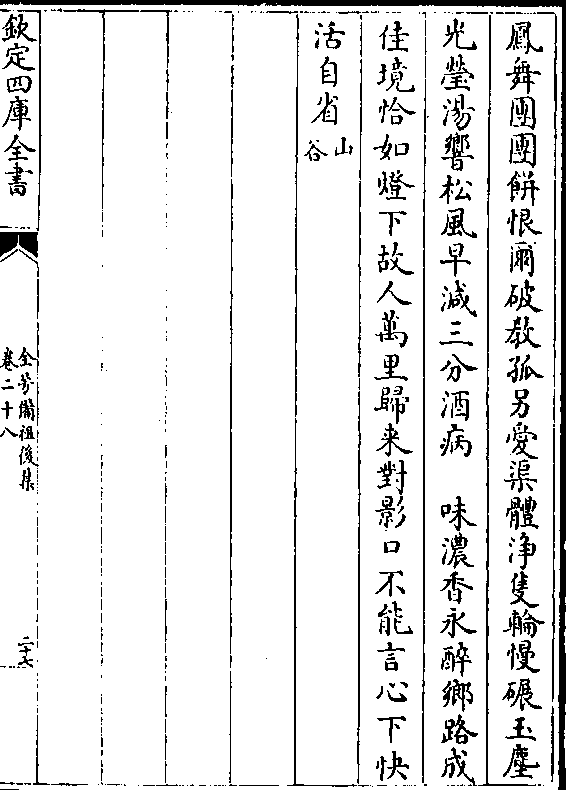 鳳舞團團餅恨爾破教孤另愛渠體浄隻輪慢碾玉塵
光瑩湯響松風早減三分酒病　味濃香永醉鄉路成
佳境恰如燈下故人萬里歸来對影口不能言心下快
活自省山谷
欽定四庫全書
全芳備祖後集
卷二十八
二十七